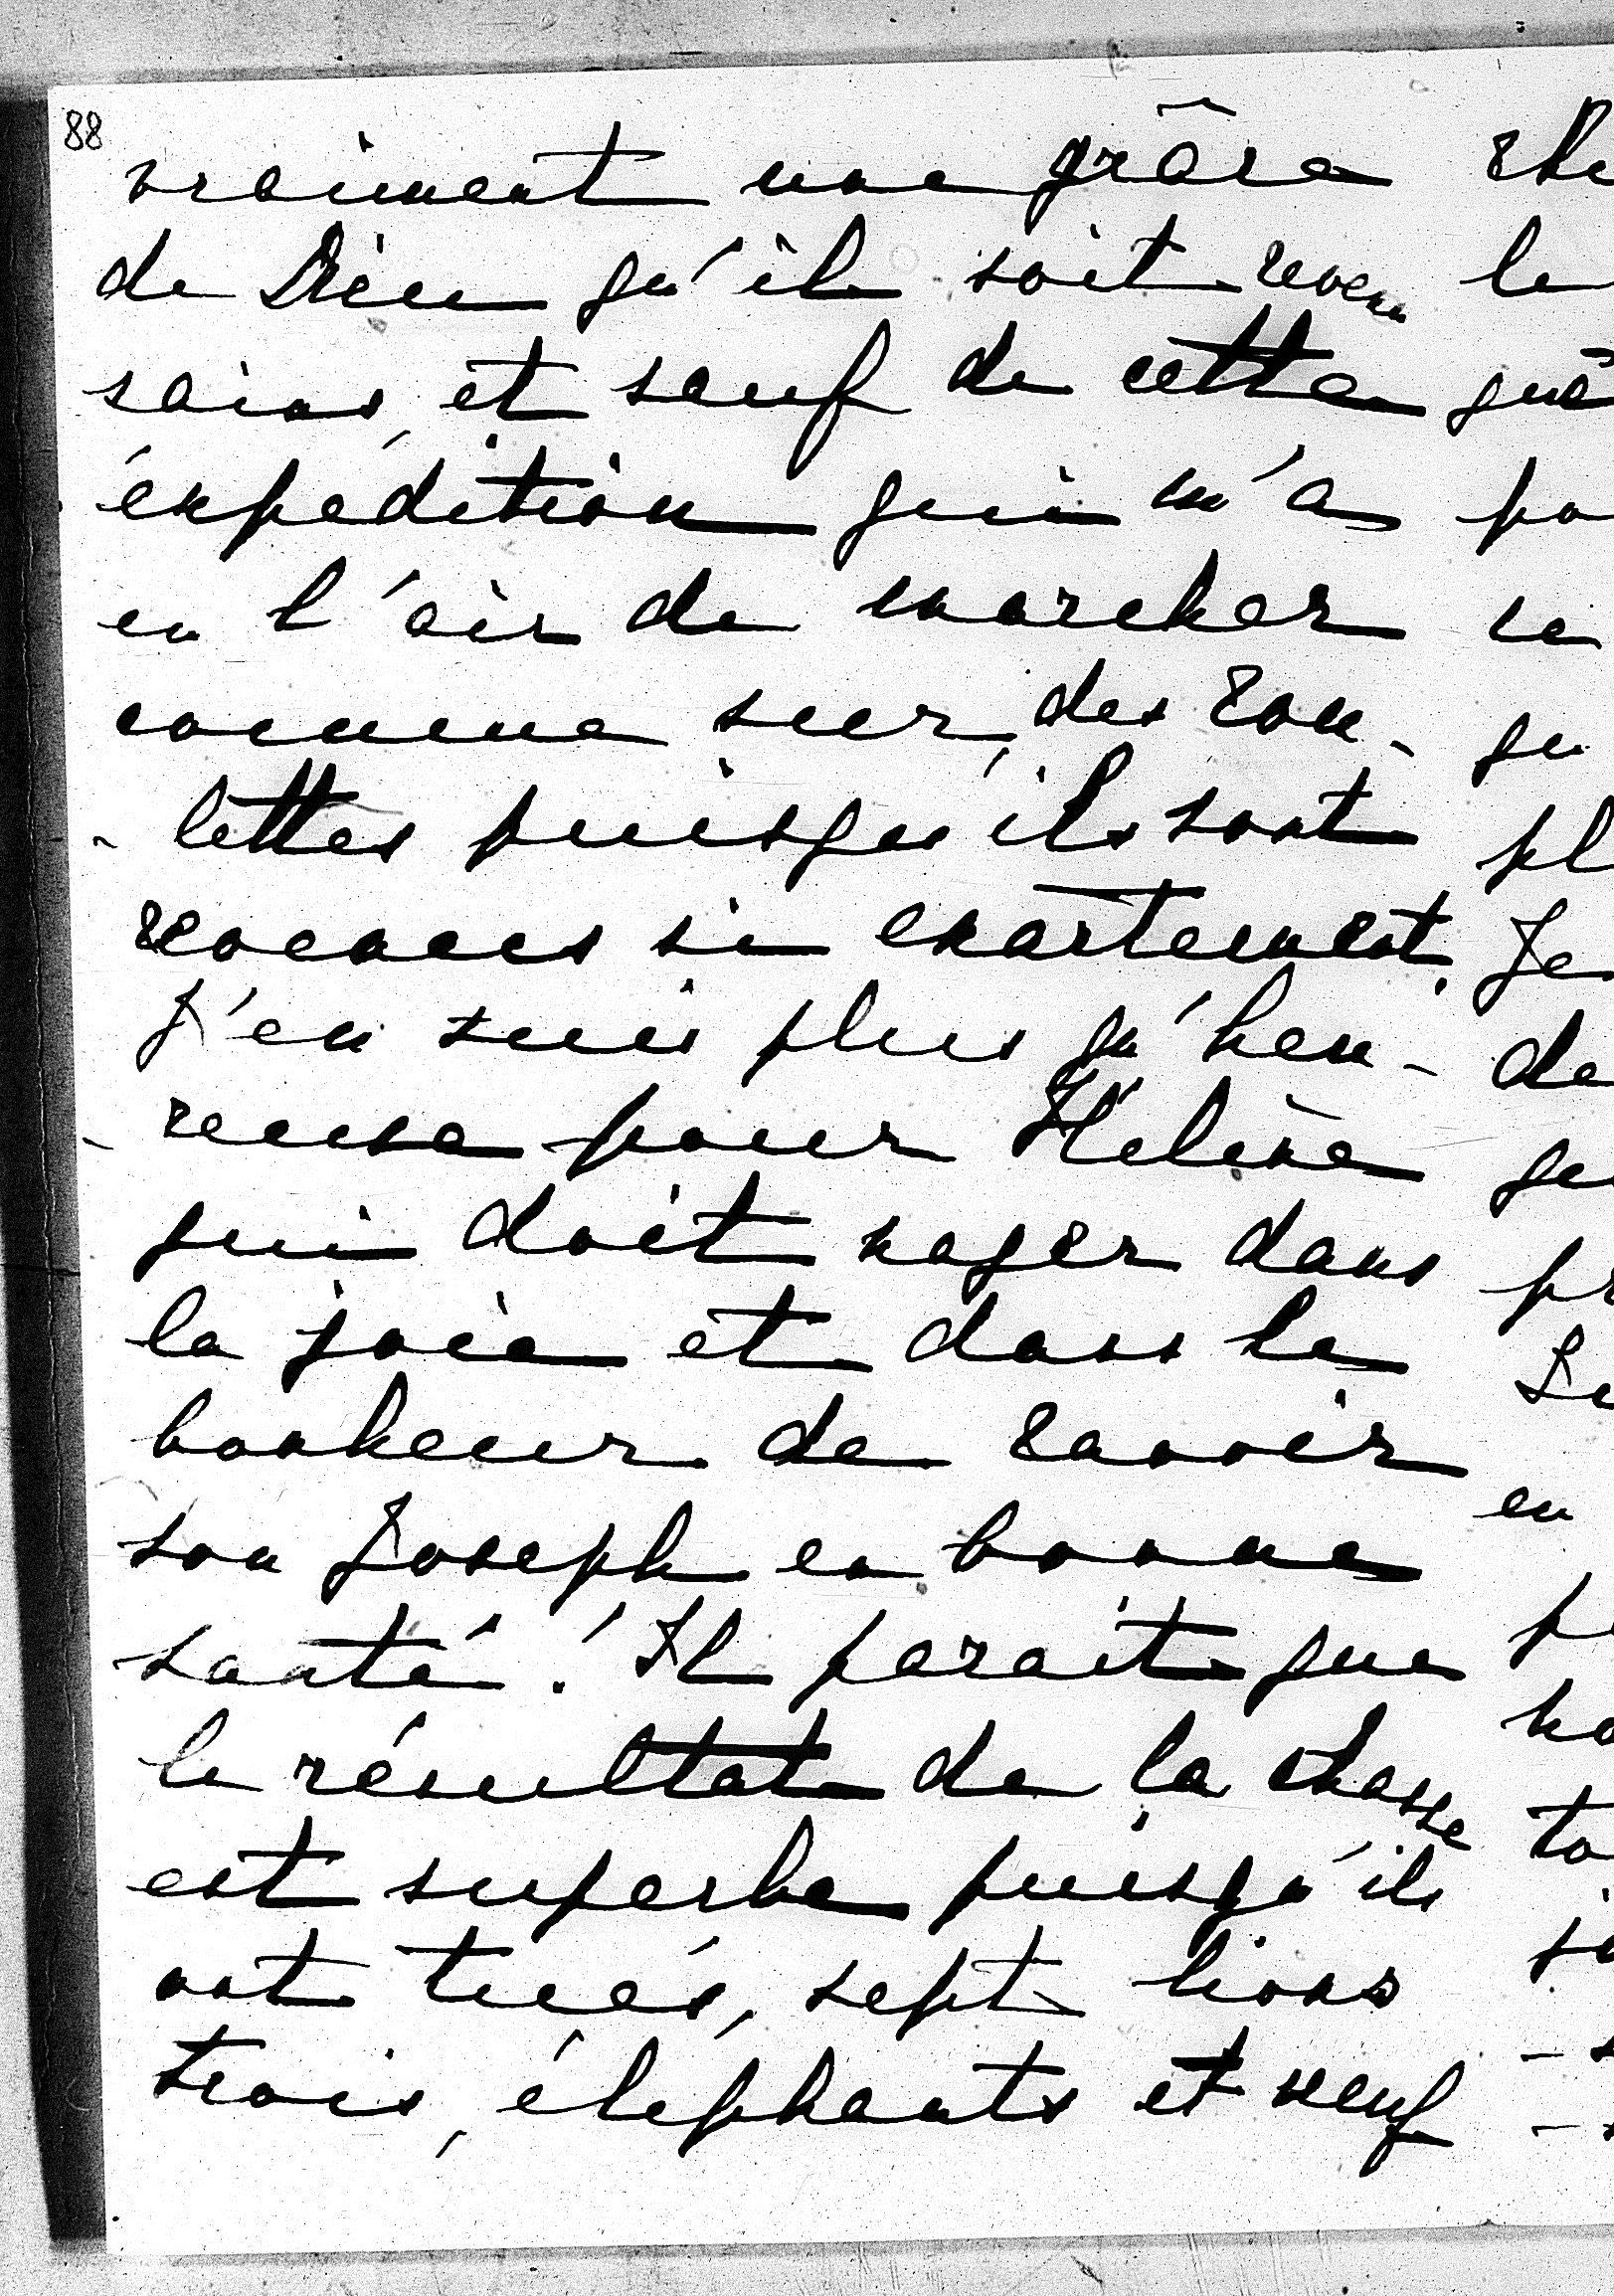 88
vraiment une grâce
de Dieu qu'il soit revenu
sains, et sauf de cette
éxpedition qui m'a
en l'air de marcher
comme sur, des rou-
- lettes puisqu'ils sont
revenus si exactement.
J'en suis plus qu'heu-
- reuse pour Hélène
qui doit nager dans
la joie et dans le
bonheur de ravoir
son Joseph en bonne
santé! Il parait que
le résultat de la chasse
est superbe puisqu'ils
ont tués, sept lions
trois, éléphants et neuf
le
Je
de
en